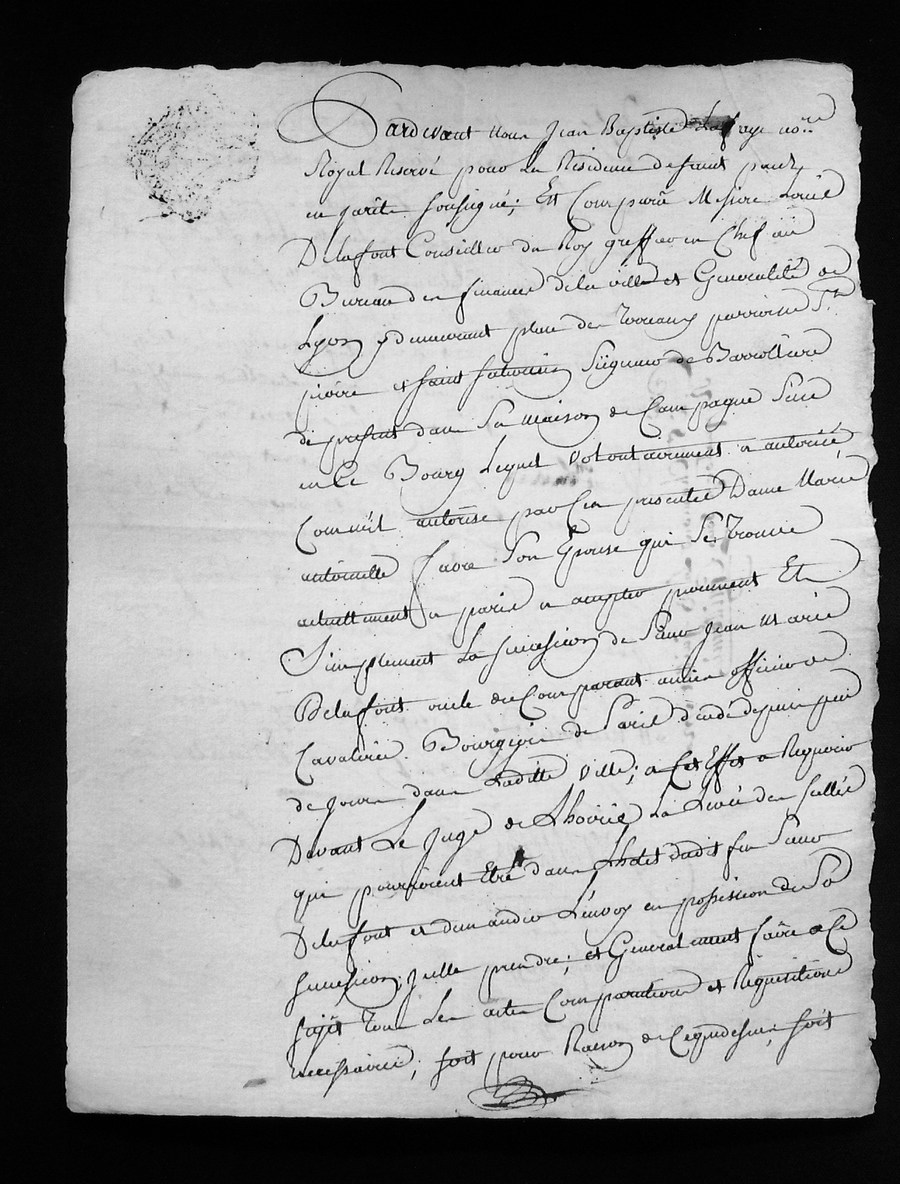 Pardevant Nous Jean Baptiste Lafaye nore
Royal Reservé pour La Residence de saint paul
en jarêts soussigné; Et Comparû Messire Louis
Delafont Conseiller du Roy greffier en Chef au
Bureau des finances de la ville et Generalité de
Lyon y demeurant place des Terreaux parroisse St
pierre et saint saturnin Seigneur de Barrolliere
de present dans Sa maison de Campagne Size
en Ce Bourg Lequel volontairement a autorisé
Comme il autorise par Ces presentes Dame Marie
antoinette favre Son Epouse qui Se Trouve
actuellement a paris a accepter purement Et
Simplement La succession de Sieur Jean Marie
Delafont oncle du Comparant ancien officier de
Cavalerie Bourgeois de Paris decedé depuis peu
de jours dans Laditte Ville; a Cet Effet a Requerir
Devant Le Juge de L'hoirie La Levée des scellés
qui pourroient Etre dans L'hotel dudit feu Sieur
Delafont et demander L'envoy en possession de Sa
succession, icelle prendre; et Generalement faire a Ce
sujet Tous Les actes Comparutions et Requisitions
necessaires, soit pour Raison de Ce que dessus, soit